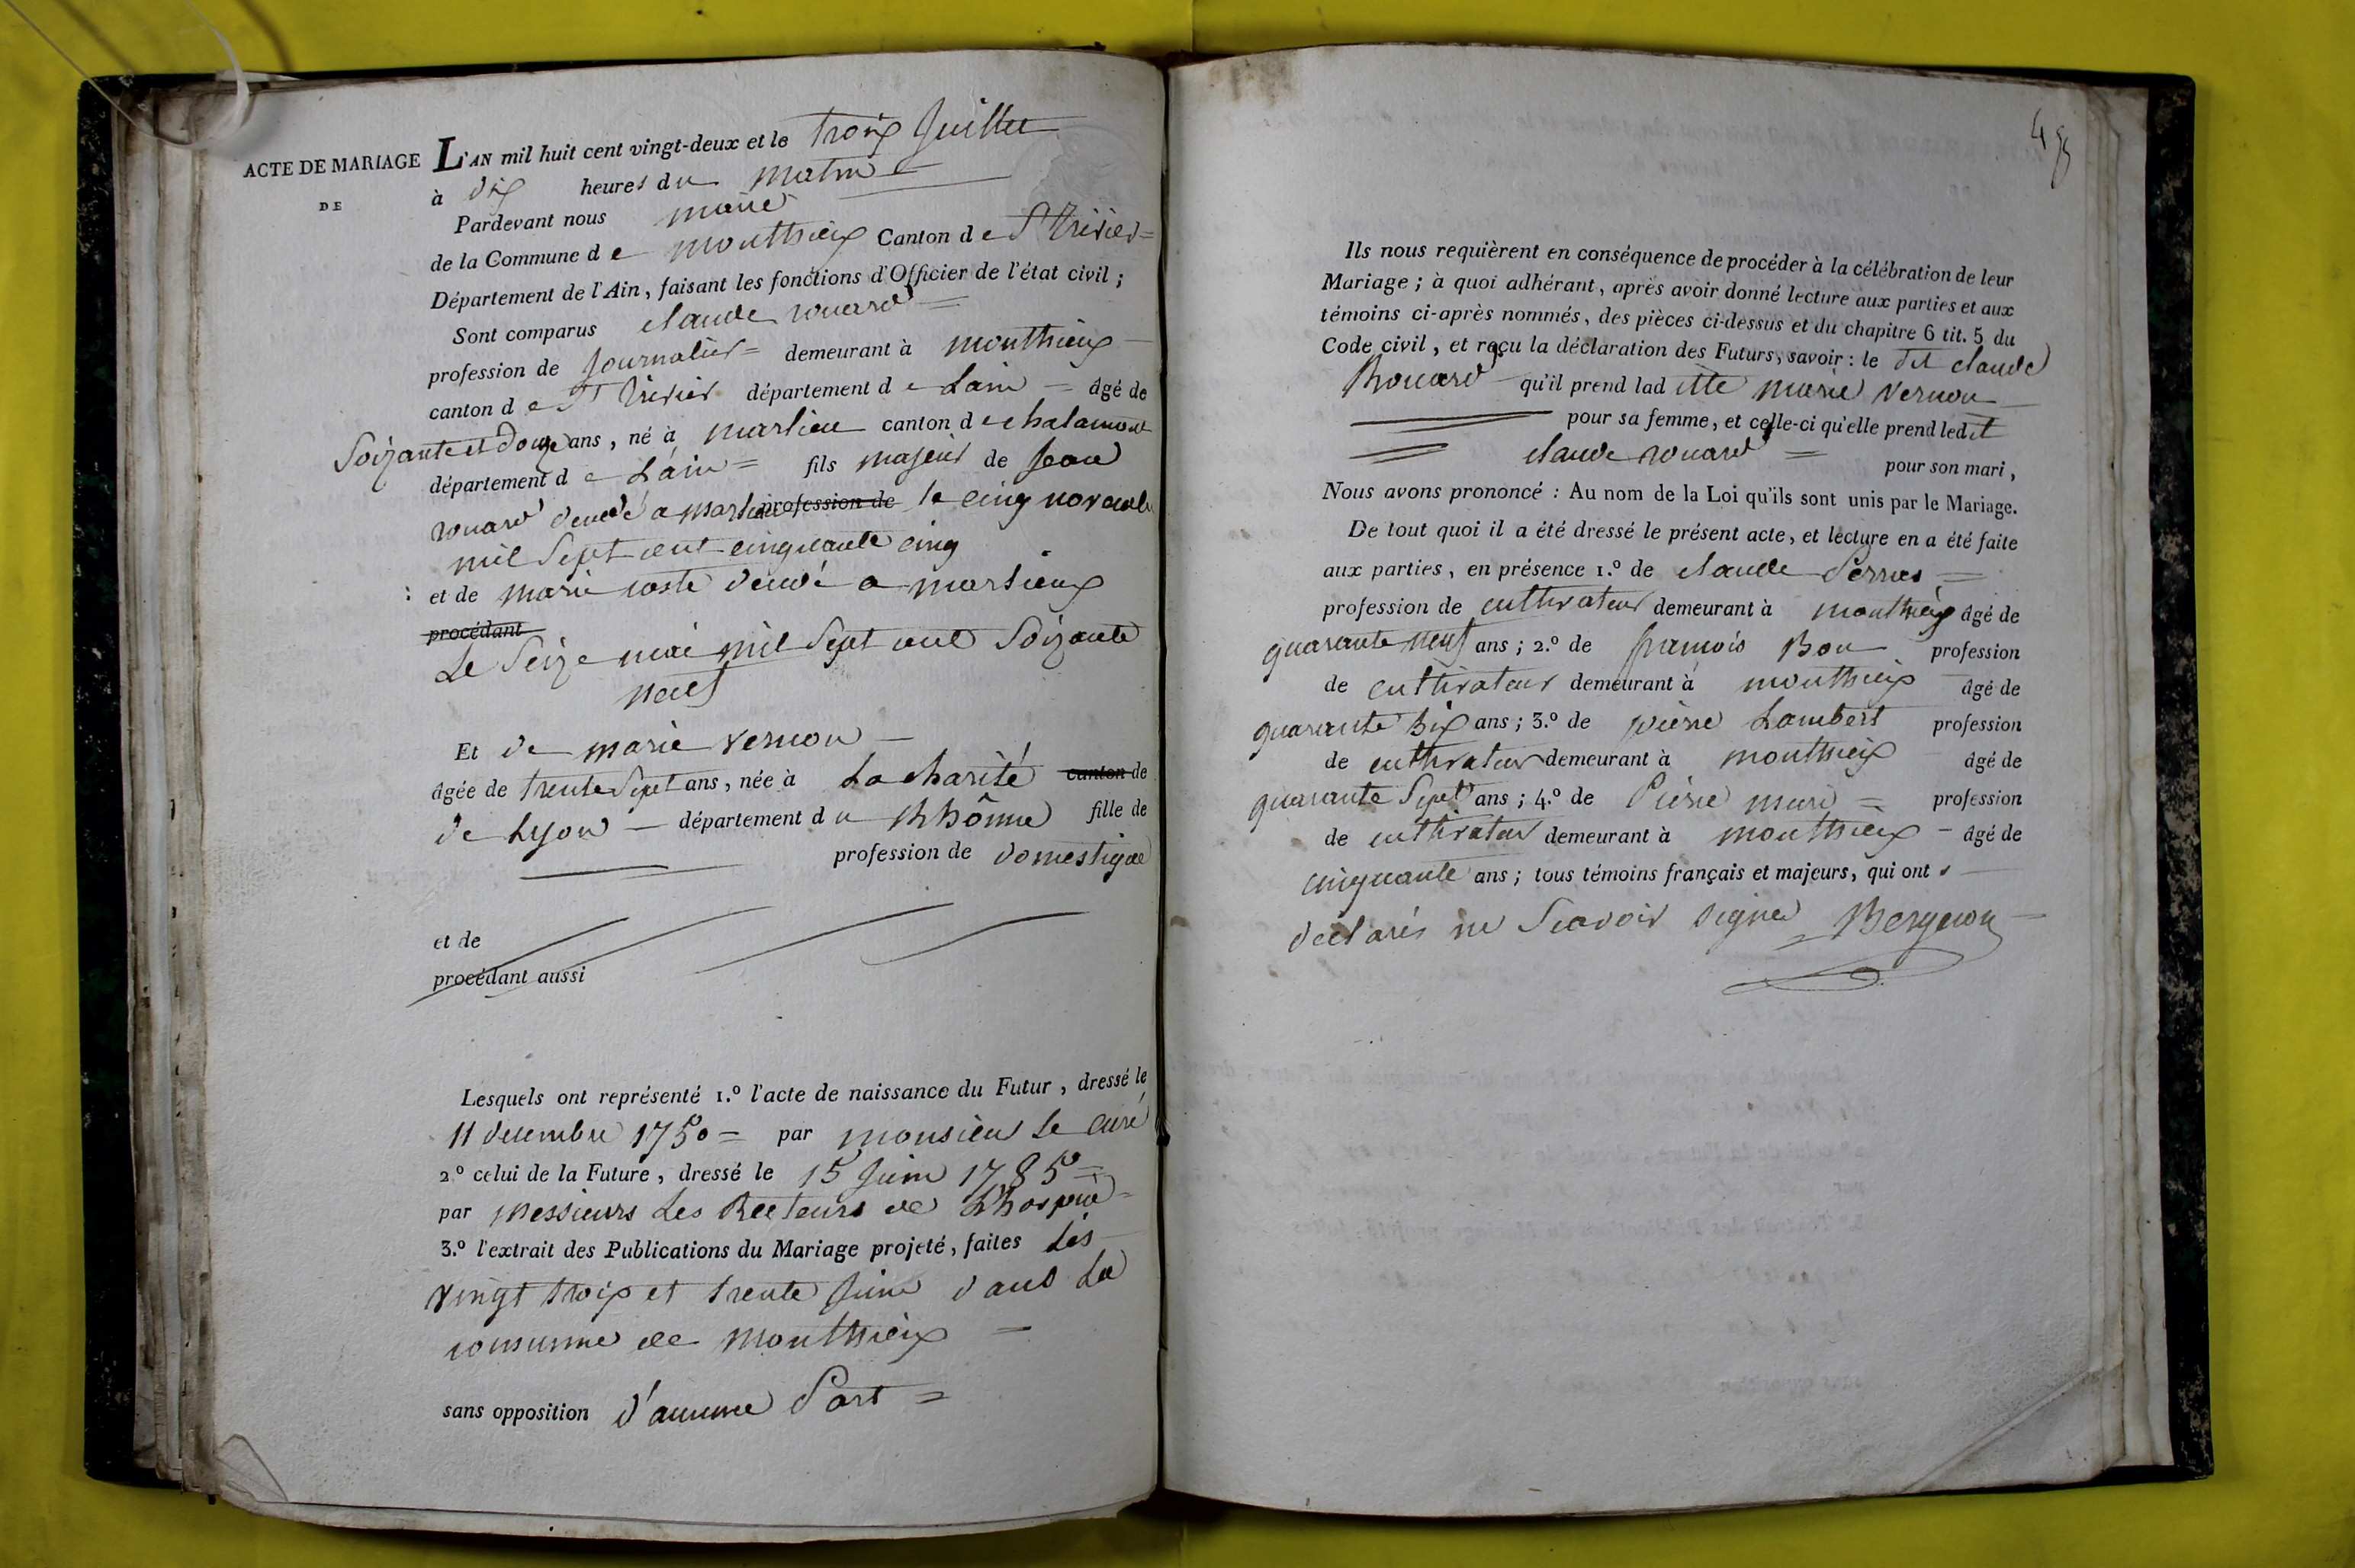 ACTE DE MARIAGE
DE
L'AN mil huit cent vingt-deux et le troix Juillet
à dix heures du matin
Pardevant nous maire
de la Commune de monthieux Canton de St trivier
Département de l'Ain, faisant les fonctions d'Officier de l'état civil ;
Sont comparus claude rouard
profession de Journalier demeurant à monthieux
canton de St trivier département de Lain âgé de
Soizante et douze ans, né à marlieu canton de chalamont
département de L'ain fils majeur de Jean
rouard décédé a marlieu profession de le cinq novembre
mil Sept cent cinquante cinq
et de marie coste décédé a marlieux
procédant
Le Seize mai mil Sept cent Soizante
neuf
Et de marie vernon
âgée de trente Sept ans, née à La charité canton de
de Lyon département du Rhône fille de
profession de domestique
et de
procédant aussi
Lesquels ont représenté 1.º l'acte de naissance du Futur, dressé le
11 decembre 1750 par monsieur le curé
2º celui de la Future, dressé le 15 Juin 1785
par messieurs Les Recteurs de
3.º l'extrait des Publications du Mariage projeté, faites Les
vingt troix et trente Juin dans La
commune de monthieux
sans opposition d'aucune Part
48
Ils nous requièrent en conséquence de procéder à la célébration de leur
Mariage ; à quoi adhérant, après avoir donné lecture aux parties et aux
témoins ci-après nommés, des pièces ci-dessus et du chapitre 6 tit. 5 du
Code civil, et reçu la déclaration des Futurs, savoir : le dit claude
Rouard qu'il prend laditte marie vernon
pour sa femme, et celle-ci qu'elle prend ledit
claude rouard pour son mari,
Nous avons prononcé : Au nom de la Loi qu'ils sont unis par le Mariage.
De tout quoi il a été dressé le présent acte, et lecture en a été faite
aux parties, en présence 1.º de claude
profession de cultivateur demeurant à monthieux âgé de
quarante neuf ans ; 2.º de francois Bon profession
de cultivateur demeurant à monthieux âgé de
quarante Six ans ; 3.º de pierre Lambert profession
de cultivateur demeurant à monthieux âgé de
quarante Sept ans ; 4.º de Pierre profession
de cultivateur demeurant à monthieux âgé de
cinquante ans ; tous témoins français et majeurs, qui ont
declarés ne Scavoir signer Bergeron